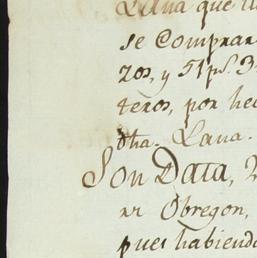 Lana que
se Comprar
zos, y 51 ps. 3
teros, por hec
dha. Lana.
Son Data, 2
ar Obregon,
pues habiendo